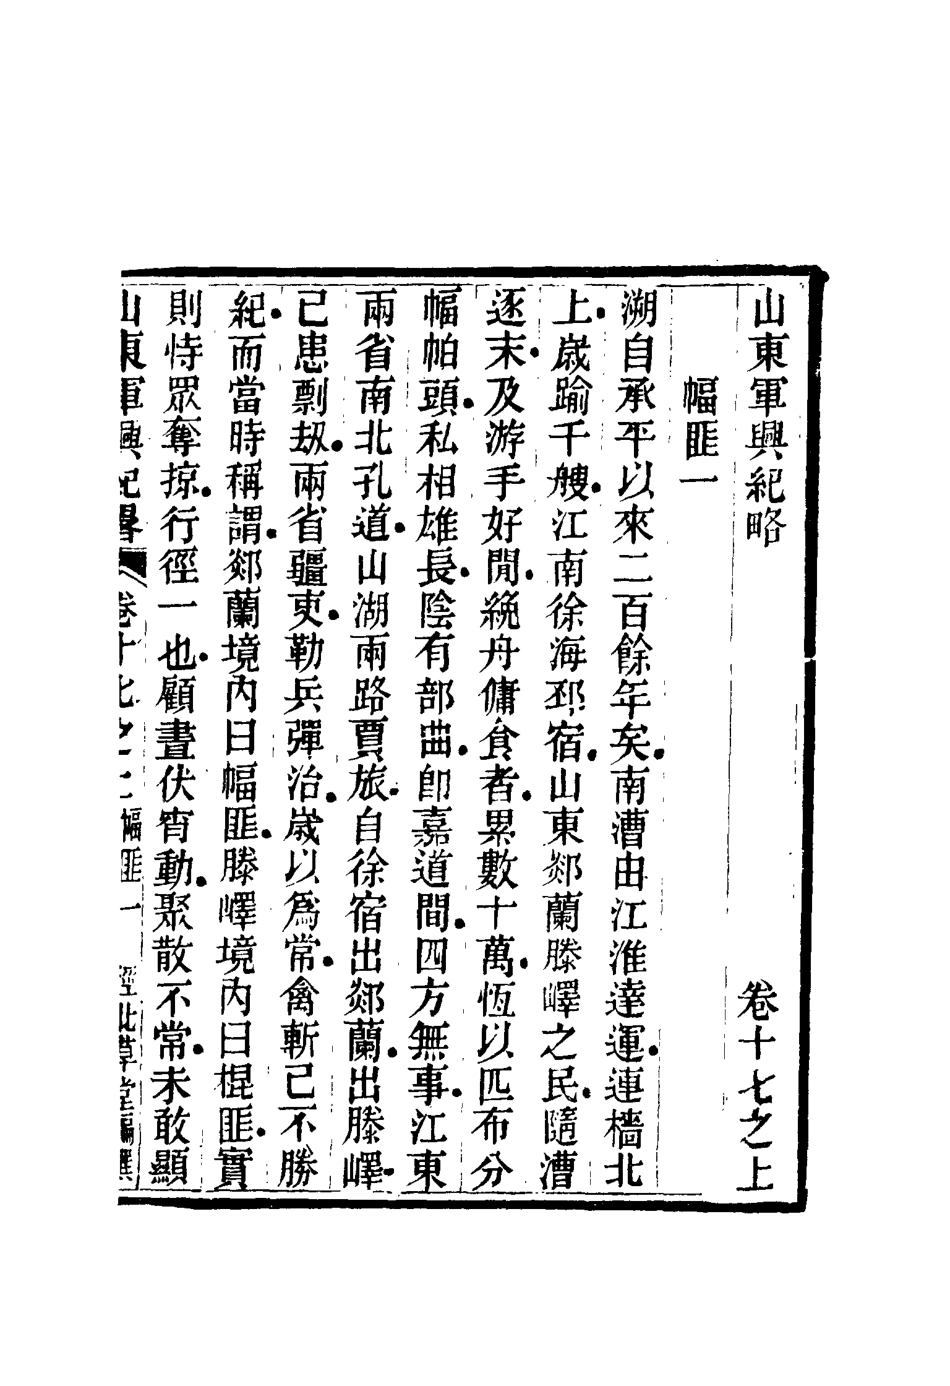 山東軍興紀略 卷十七之上
幅匪一
溯自承平以來二百餘年矣南漕由江淮達運連檣北
上歲踰千艘江南徐海邳宿山東郯蘭滕嶧之民隨漕
逐末及游手好閒絻舟傭食者累數十萬恆以匹布分
幅帕頭私相雄長陰有部曲卽嘉道間四方無事江東
兩省南北孔道山湖兩路賈旅自徐宿出郯蘭出滕嶧
已患剽刼兩省疆吏勒兵彈治歲以爲常禽斬已不勝
紀而當時稱謂郯蘭境內曰幅匪滕嶧境內曰棍匪實
則恃眾奪掠行徑一也顧晝伏宵動聚散不常未敢顯
山東軍興紀畧 卷十七之上 幅匪一 經此草堂編譔